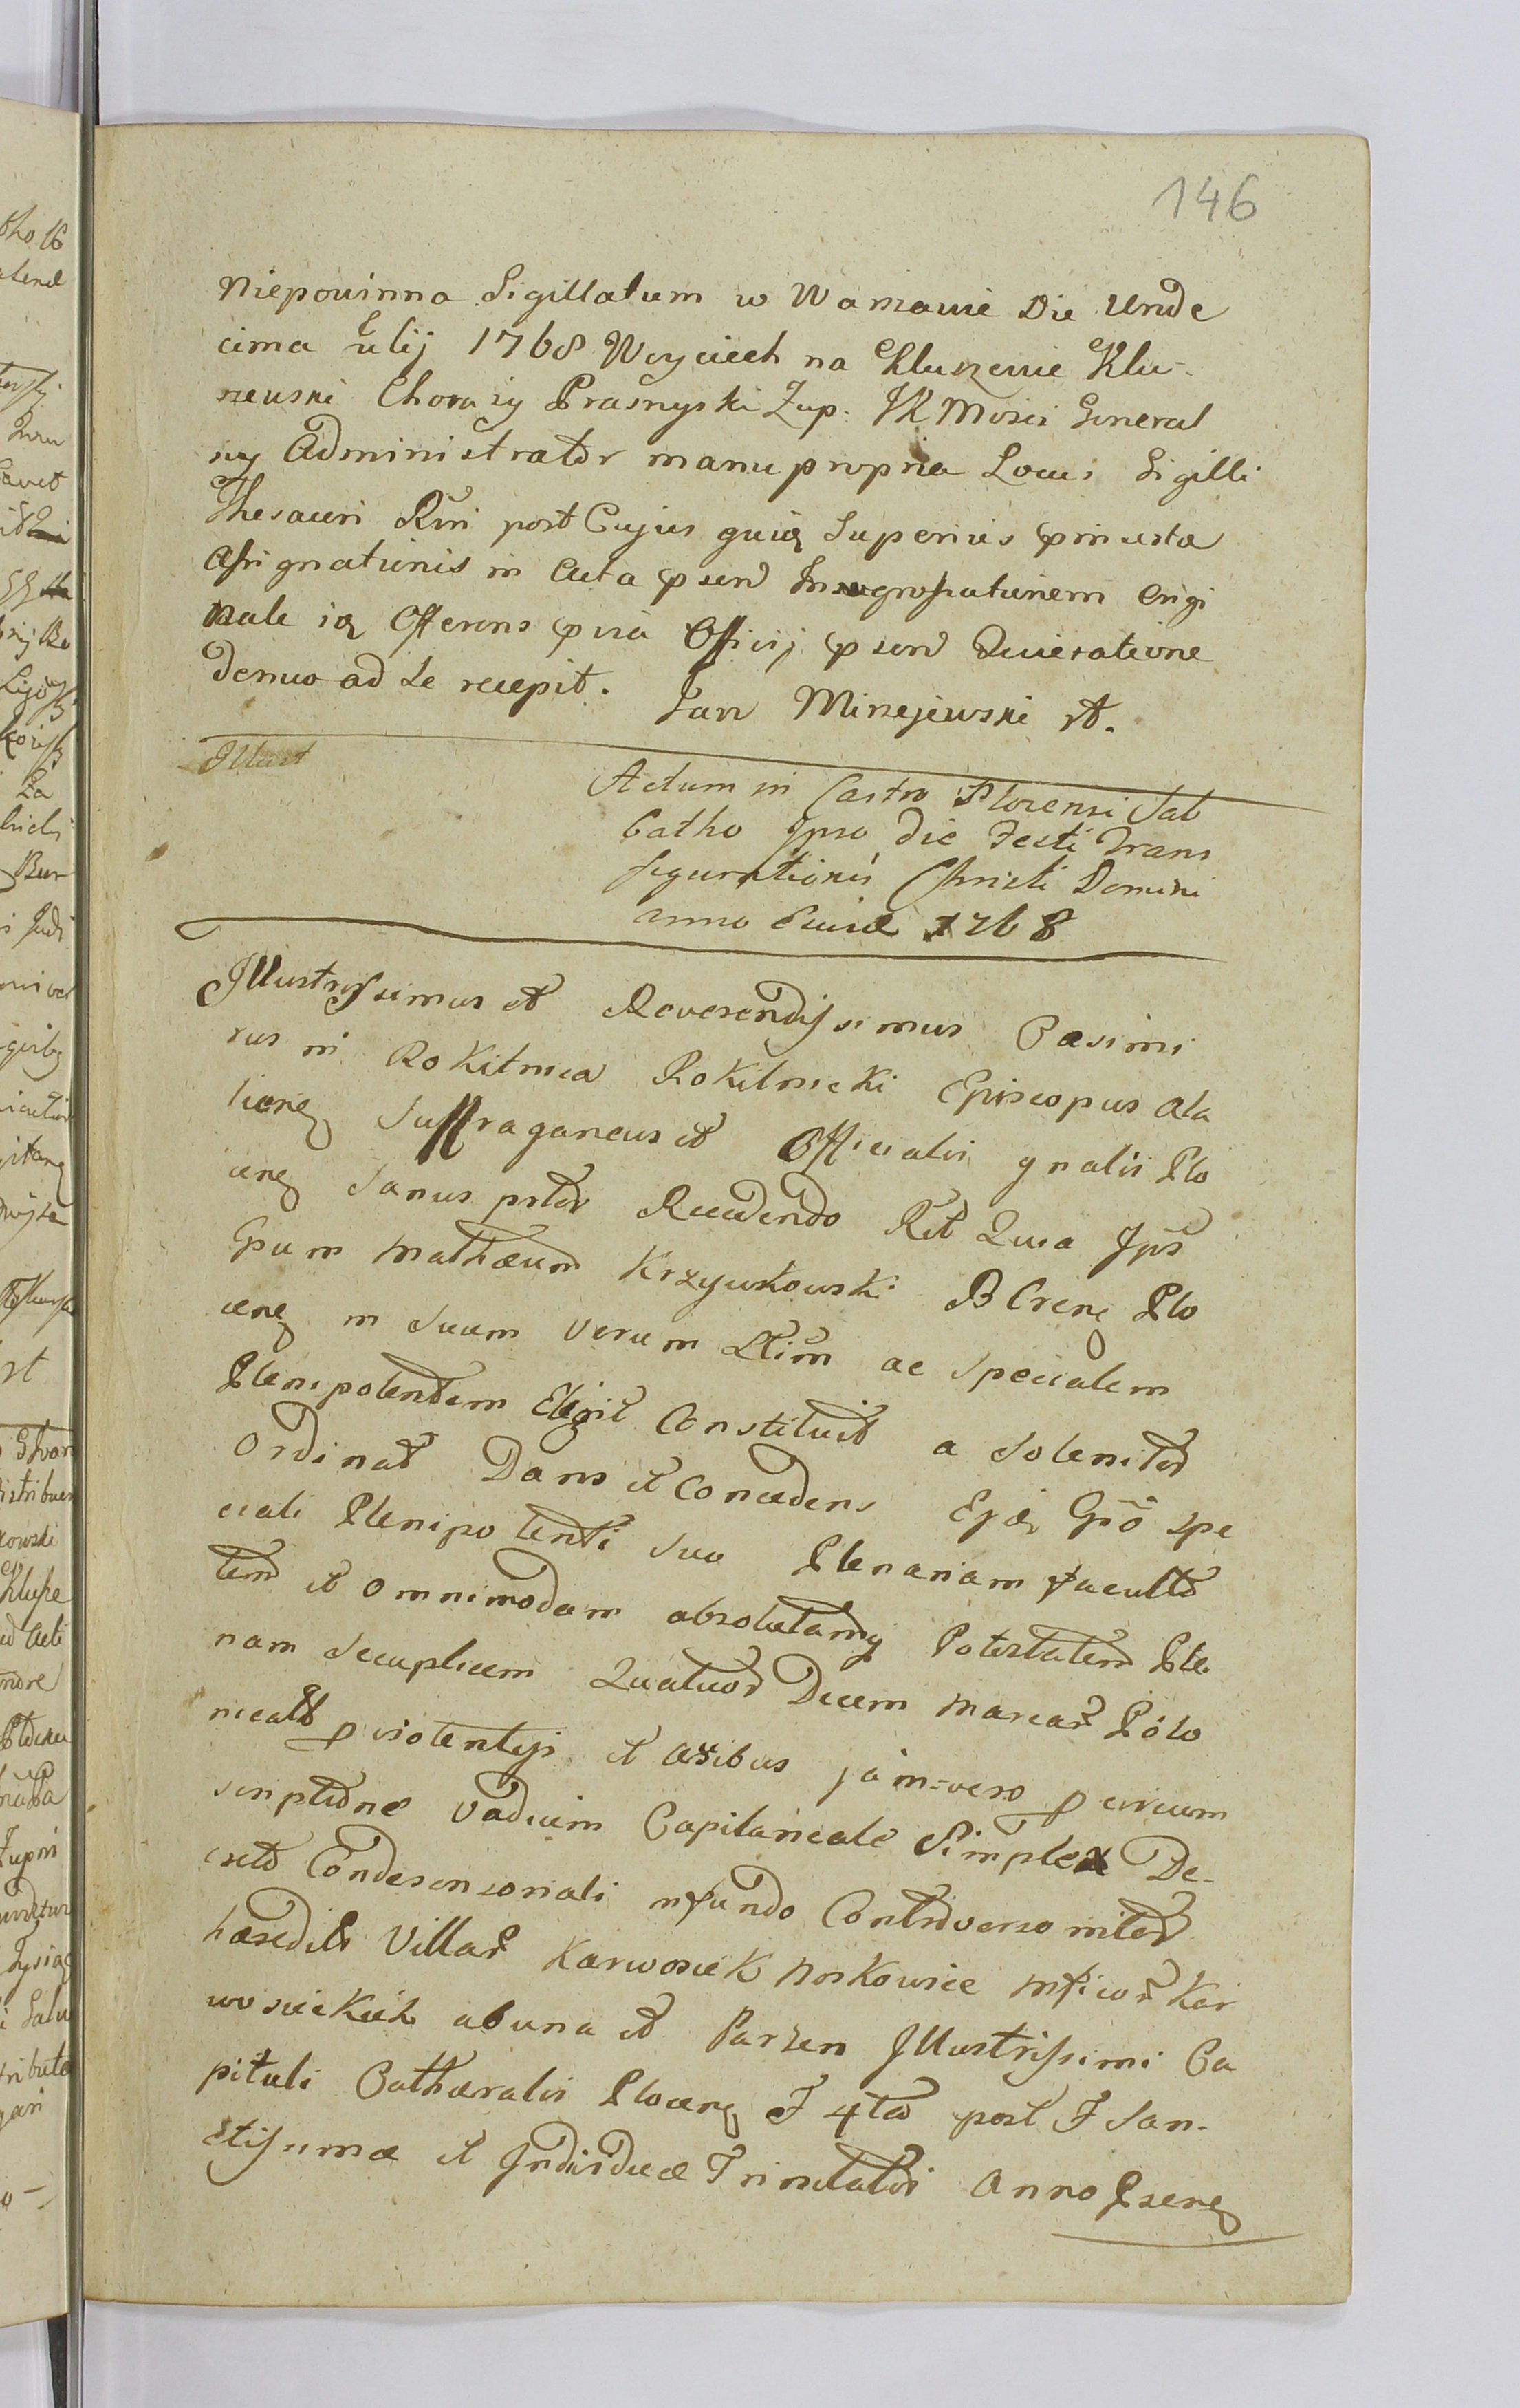 146
Niepowinna Sigillatum w Warszawie Die Unde
cima Julij 1768 Woyciech na Kluszewie Klu-
szewski Chorąży Prasnyski Zup: JK Mości General
ny Administrator manu propria Locus Sigilli
Thesauri Rni post Cujus quidę Superius insertæ
Assignationis in Acta psend Ingrossationem Origi
nale idę Offerens Officij psend Quietatione
denuo ad se recepit. Jan Miszejewski st.
Illust
Actum in Castro Plocensi Sab
batho Ipso die Festi Trans
figurationis Christi Domini
anno Ejusd 1768
Illustrissimus et Reverendissimus Casimi
rus in Rokitnica Rokitnicki Episcopus Ala
lienę Suffraganeus et Officialis gnalis Plo
cenę Sanus pster Recedendo Rit Quia Ips
Gsum Mathæum Krzywkowski B Crenę Plo
cenę in Suum verum Ltim ac Specialem
Plenipotentem Elegit Constituit a Soleniter
Ordinat Dans et Concedens Ejdę Gso Spe
ciali Plenipotenti Suo Plenariam facultt
tem et omnimodam absolutamq Potestatem
nam Secuplicem Quatuor Decem Marcar Polo
nicalt p violentijs et aribus jam=vero p circum
scriptione Vadium Capitaneale Simplex De-
creto Condescensoriali in fundo Controverso inter
hæredits Villar Karwosiek Noskowice Kar
wosieckich ab una et Parten Illustrissimi Ca
pituli Cathæralis Plocenę F 4ta post F San-
ctissimæ et Individuæ Trinitatis Anno Psenę